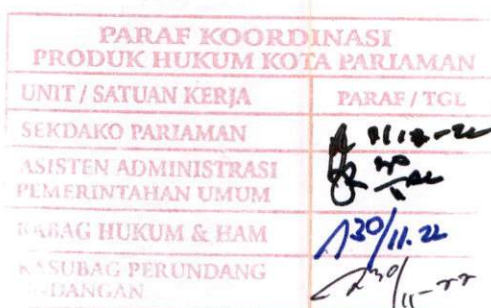 PARAF KOORDINASI
PRODUK HUKUM KOTA PARIAMAN
UNIT / SATUAN KERJA PARAF / TGL
SEKDAKO PARIAMAN
ASISTEN ADMINISTRASI
PEMERINTAHAN UMUM
KABAG HUKUM & HAM 30/11.22
KASUBAG PERUNDANG 30/11-22
UNDANGAN